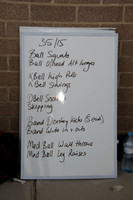 3/5/15
Ball Squats
Ball o/head Alt Lunges
KBell High Pulls
KBell Swings
DBell Snatch
Skipping
Band Donkey kicks
Band Glute in + outs
Med Ball Wall throws
Med Ball Leg Raises